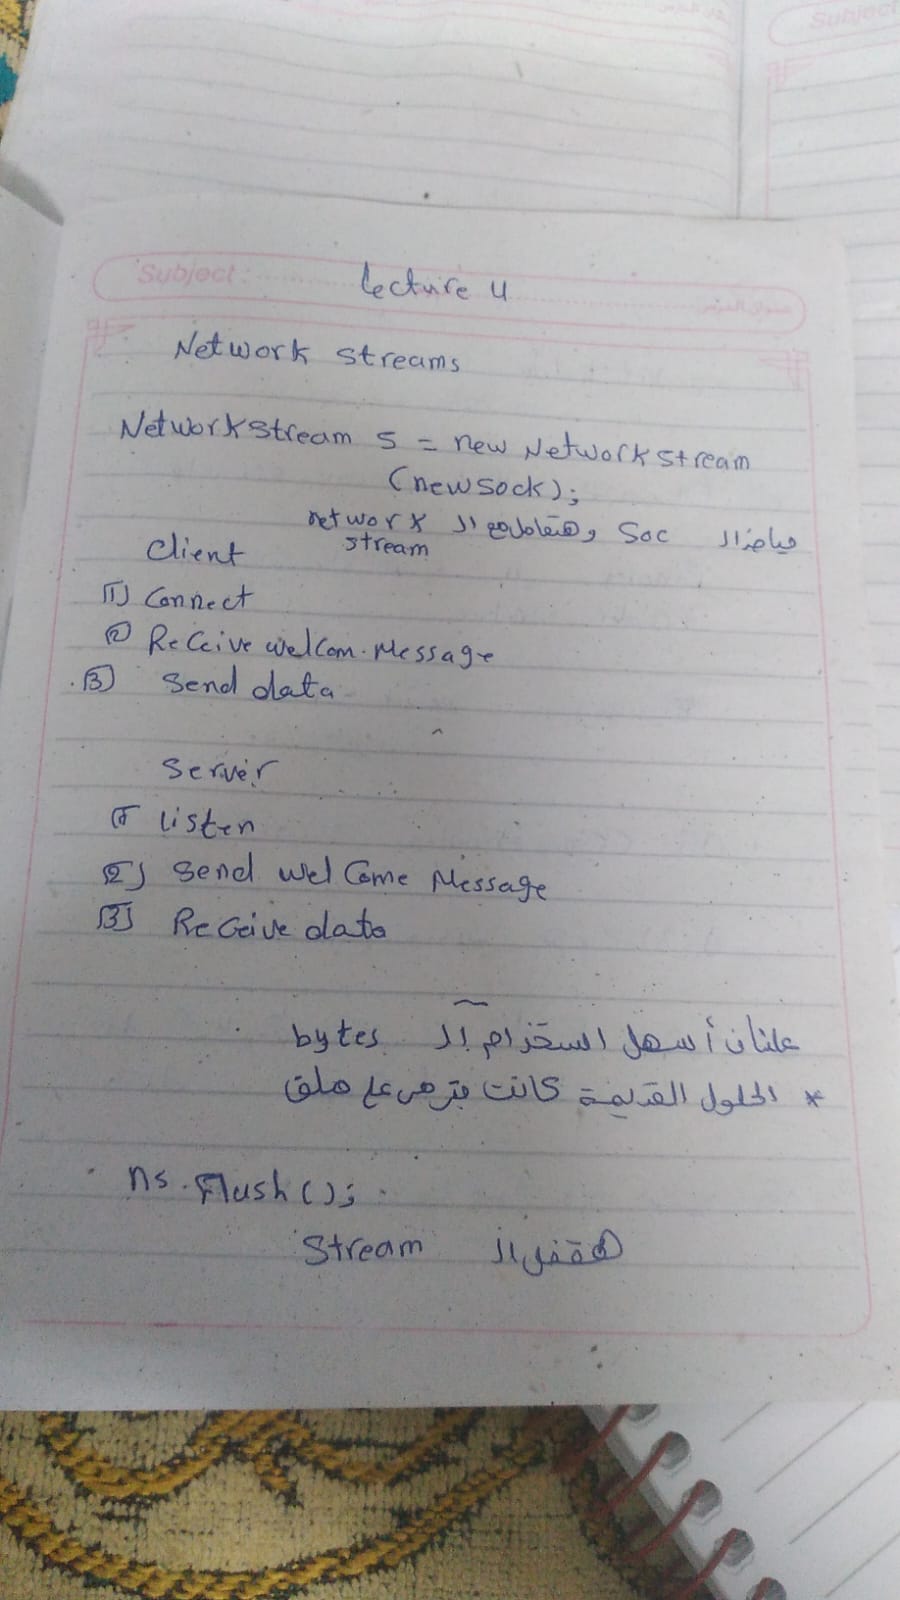 Subject
Subject: lecture 4
عنوان الدرس
Network streams
Networkstream s = new Networkstream
(newsock);
هياخد ال Soc وهتعامل مع ال network stream
Client
1 Connect
2 Receive welcom. Message
3 Send data
Server
1 Listen
2 Send welcome Message
3 Receive data
علشان أسهل استخدام ال bytes
* الحلول القديمة كانت بترمى على
ns.Flush();
هقفل ال Stream